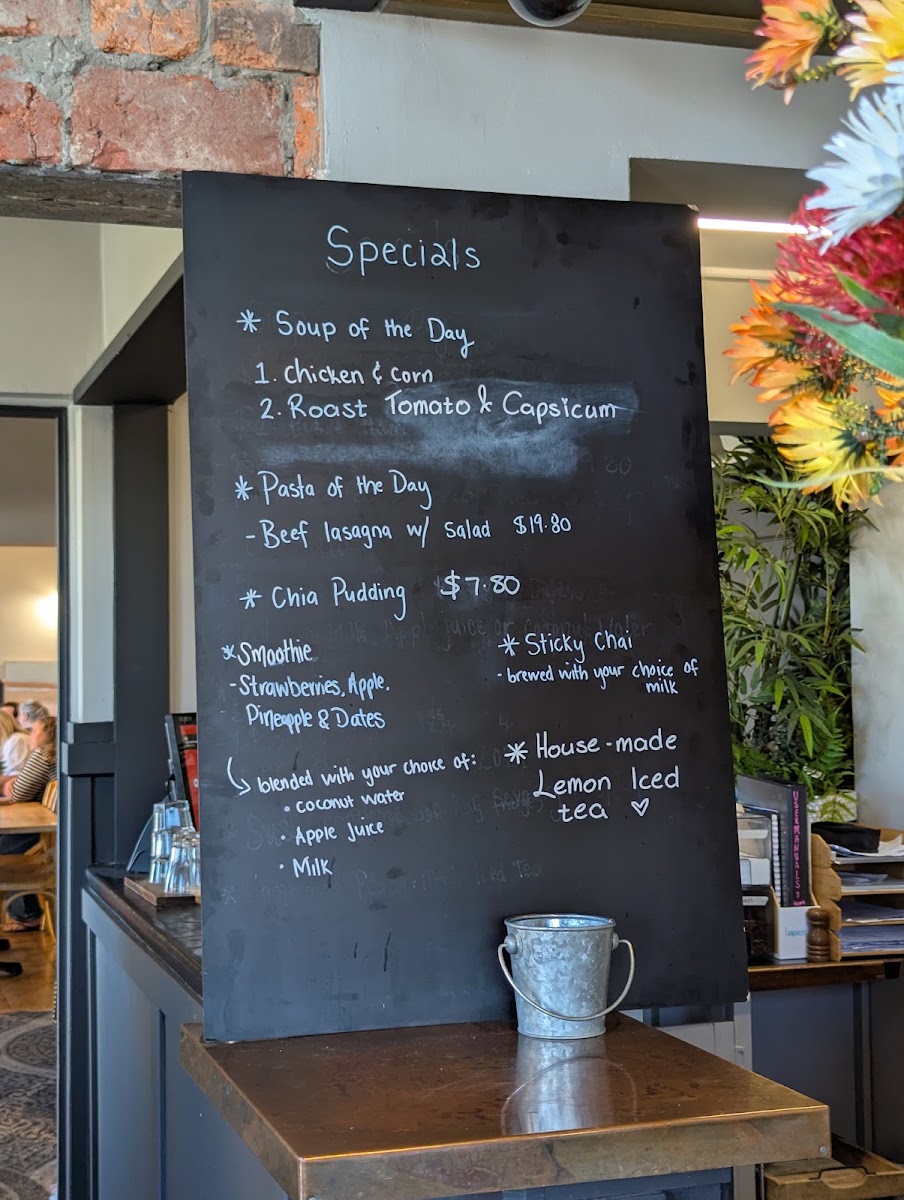 Specials
* Soup of the Day
1. Chicken & Corn
2. Roast Tomato & Capsicum
* Pasta of the Day
- Beef lasagna w/ salad $19.80
* Chia Pudding $7.80
* Smoothie
- Strawberries, Apple,
Pineapple & Dates
blended with your choice of:
• coconut water
• Apple Juice
• Milk
* Sticky Chai
- brewed with your choice of
milk
* House-made
Lemon Iced
tea ♡
USER MANUALS